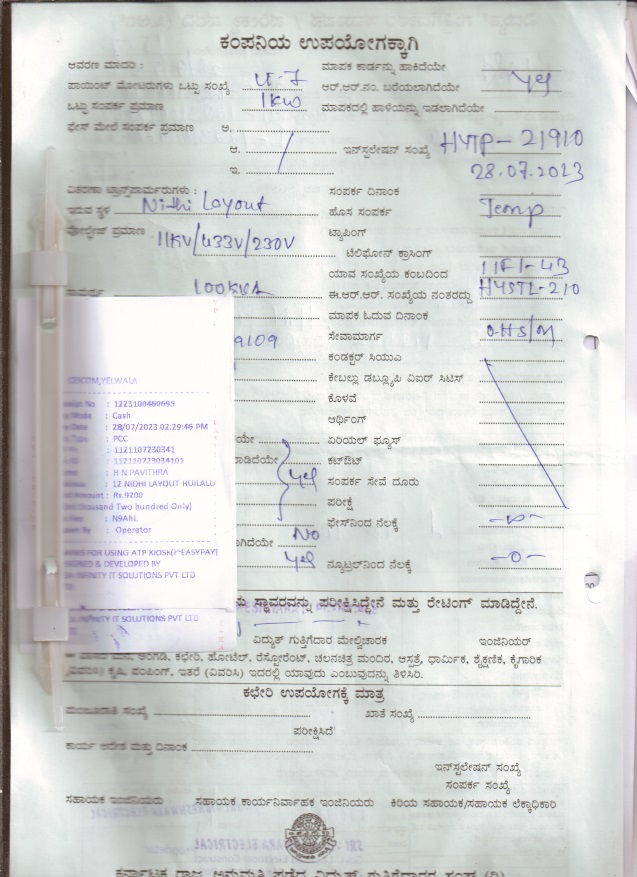 ಕಂಪನಿಯ ಉಪಯೋಗಕ್ಕಾಗಿ
ಆವರಣ ಮಾದರಿ :
ಮಾಪಕ ಕಾರ್ಡನ್ನು ಹಾಕಿದೆಯೇ
ಪಾಯಿಂಟ್ ಮೋಟರುಗಳು ಒಟ್ಟು ಸಂಖ್ಯೆ LT-7
ಆರ್.ಆರ್.ನಂ. ಬರೆಯಲಾಗಿದೆಯೇ yes
ಒಟ್ಟು ಸಂಪರ್ಕ ಪ್ರಮಾಣ 1KW
ಮಾಪಕದಲ್ಲಿ ಹಾಳೆಯನ್ನು ಇಡಲಾಗಿದೆಯೇ
ಫೇಸ್ ಮೇಲೆ ಸಂಪರ್ಕ ಪ್ರಮಾಣ ಅ.
ಆ.
ಇನ್‌ಸ್ಟಲೇಷನ್ ಸಂಖ್ಯೆ HYTP-21910
ಇ.
28.07.2023
ವಿತರಣಾ ಟ್ರಾನ್ಸ್‌ಫಾರ್ಮರುಗಳು :
ಸಂಪರ್ಕ ದಿನಾಂಕ
ಇರುವ ಸ್ಥಳ Nidhi Layout
ಹೊಸ ಸಂಪರ್ಕ Temp
ವೋಲ್ಟೇಜ್ ಪ್ರಮಾಣ 11KV/433V/230V
ಟ್ಯಾಪಿಂಗ್
ಟೆಲಿಫೋನ್ ಕ್ರಾಸಿಂಗ್
ಯಾವ ಸಂಖ್ಯೆಯ ಕಂಬದಿಂದ
100KVA
ಈ.ಆರ್.ಆರ್. ಸಂಖ್ಯೆಯ ನಂತರದ್ದು HYSTL-210
ಮಾಪಕ ಓದುವ ದಿನಾಂಕ
9109
ಸೇವಾಮಾರ್ಗ O.HS/M
ಕಂಡಕ್ಟರ್ ಸಿಯುಎ
ಕೇಬಲ್ಲು ಡಬ್ಲ್ಯೂಪಿ ಏಐರ್ ಸಿಟಿಸ್
ಕೊಳವೆ
ಆರ್ಥಿಂಗ್
ಯೇ
ಏರಿಯಲ್ ಫ್ಯೂಸ್
ಮಾಡಿದೆಯೇ
ಕಟ್‌ಔಟ್
yes
ಸಂಪರ್ಕ ಸೇವೆ ದೂರು
ಪರೀಕ್ಷೆ
ಫೇಸ್‌ನಿಂದ ನೆಲಕ್ಕೆ
ಾಗಿದೆಯೇ No
yes
ನ್ಯೂಟ್ರಲ್‌ನಿಂದ ನೆಲಕ್ಕೆ —0—
CESCOM,YELWALA
No : 1223100460695
Mode : Cash
Date : 28/07/2023 02:29:46 PM
Type : PCC
: 1121107230341
: 11211072303410
: H N PAVITHRA
: 12 NIDHI LAYOUT HUILALU
Amount : Rs.9200
thousand Two hundred Only)
: N9AhL
By : Operator
FOR USING ATP KIOSK(~EASYPAY)
& DEVELOPED BY
INFINITY IT SOLUTIONS PVT LTD
INFINITY IT SOLUTIONS PVT LTD
ಸ್ಥಾವರವನ್ನು ಪರೀಕ್ಷಿಸಿದ್ದೇನೆ ಮತ್ತು ರೇಟಿಂಗ್ ಮಾಡಿದ್ದೇನೆ.
ವಿದ್ಯುತ್ ಗುತ್ತಿಗೆದಾರ ಮೇಲ್ವಿಚಾರಕ
ಇಂಜಿನಿಯರ್
ಮನೆ, ಅಂಗಡಿ, ಕಛೇರಿ, ಹೋಟೆಲ್, ರೆಸ್ಟೋರೆಂಟ್, ಚಲನಚಿತ್ರ ಮಂದಿರ, ಆಸ್ಪತ್ರೆ, ಧಾರ್ಮಿಕ, ಶೈಕ್ಷಣಿಕ, ಕೈಗಾರಿಕ
(ವಿವರಿಸಿ) ಕೃಷಿ, ಪಂಪಿಂಗ್, ಇತರೆ (ವಿವರಿಸಿ) ಇದರಲ್ಲಿ ಯಾವುದು ಎಂಬುವುದನ್ನು ತಿಳಿಸಿರಿ.
ಕಛೇರಿ ಉಪಯೋಗಕ್ಕೆ ಮಾತ್ರ
ಮಂಜೂರಾತಿ ಸಂಖ್ಯೆ
ಖಾತೆ ಸಂಖ್ಯೆ
ಪರೀಕ್ಷಿಸಿದೆ
ಕಾರ್ಯ ಆದೇಶ ಮತ್ತು ದಿನಾಂಕ
ಇನ್‌ಸ್ಟಲೇಷನ್ ಸಂಖ್ಯೆ
ಸಂಪರ್ಕ ಸಂಖ್ಯೆ
ಸಹಾಯಕ ಇಂಜಿನಿಯರು
ಸಹಾಯಕ ಕಾರ್ಯನಿರ್ವಾಹಕ ಇಂಜಿನಿಯರು
ಕಿರಿಯ ಸಹಾಯಕ/ಸಹಾಯಕ ಲೆಕ್ಕಾಧಿಕಾರಿ